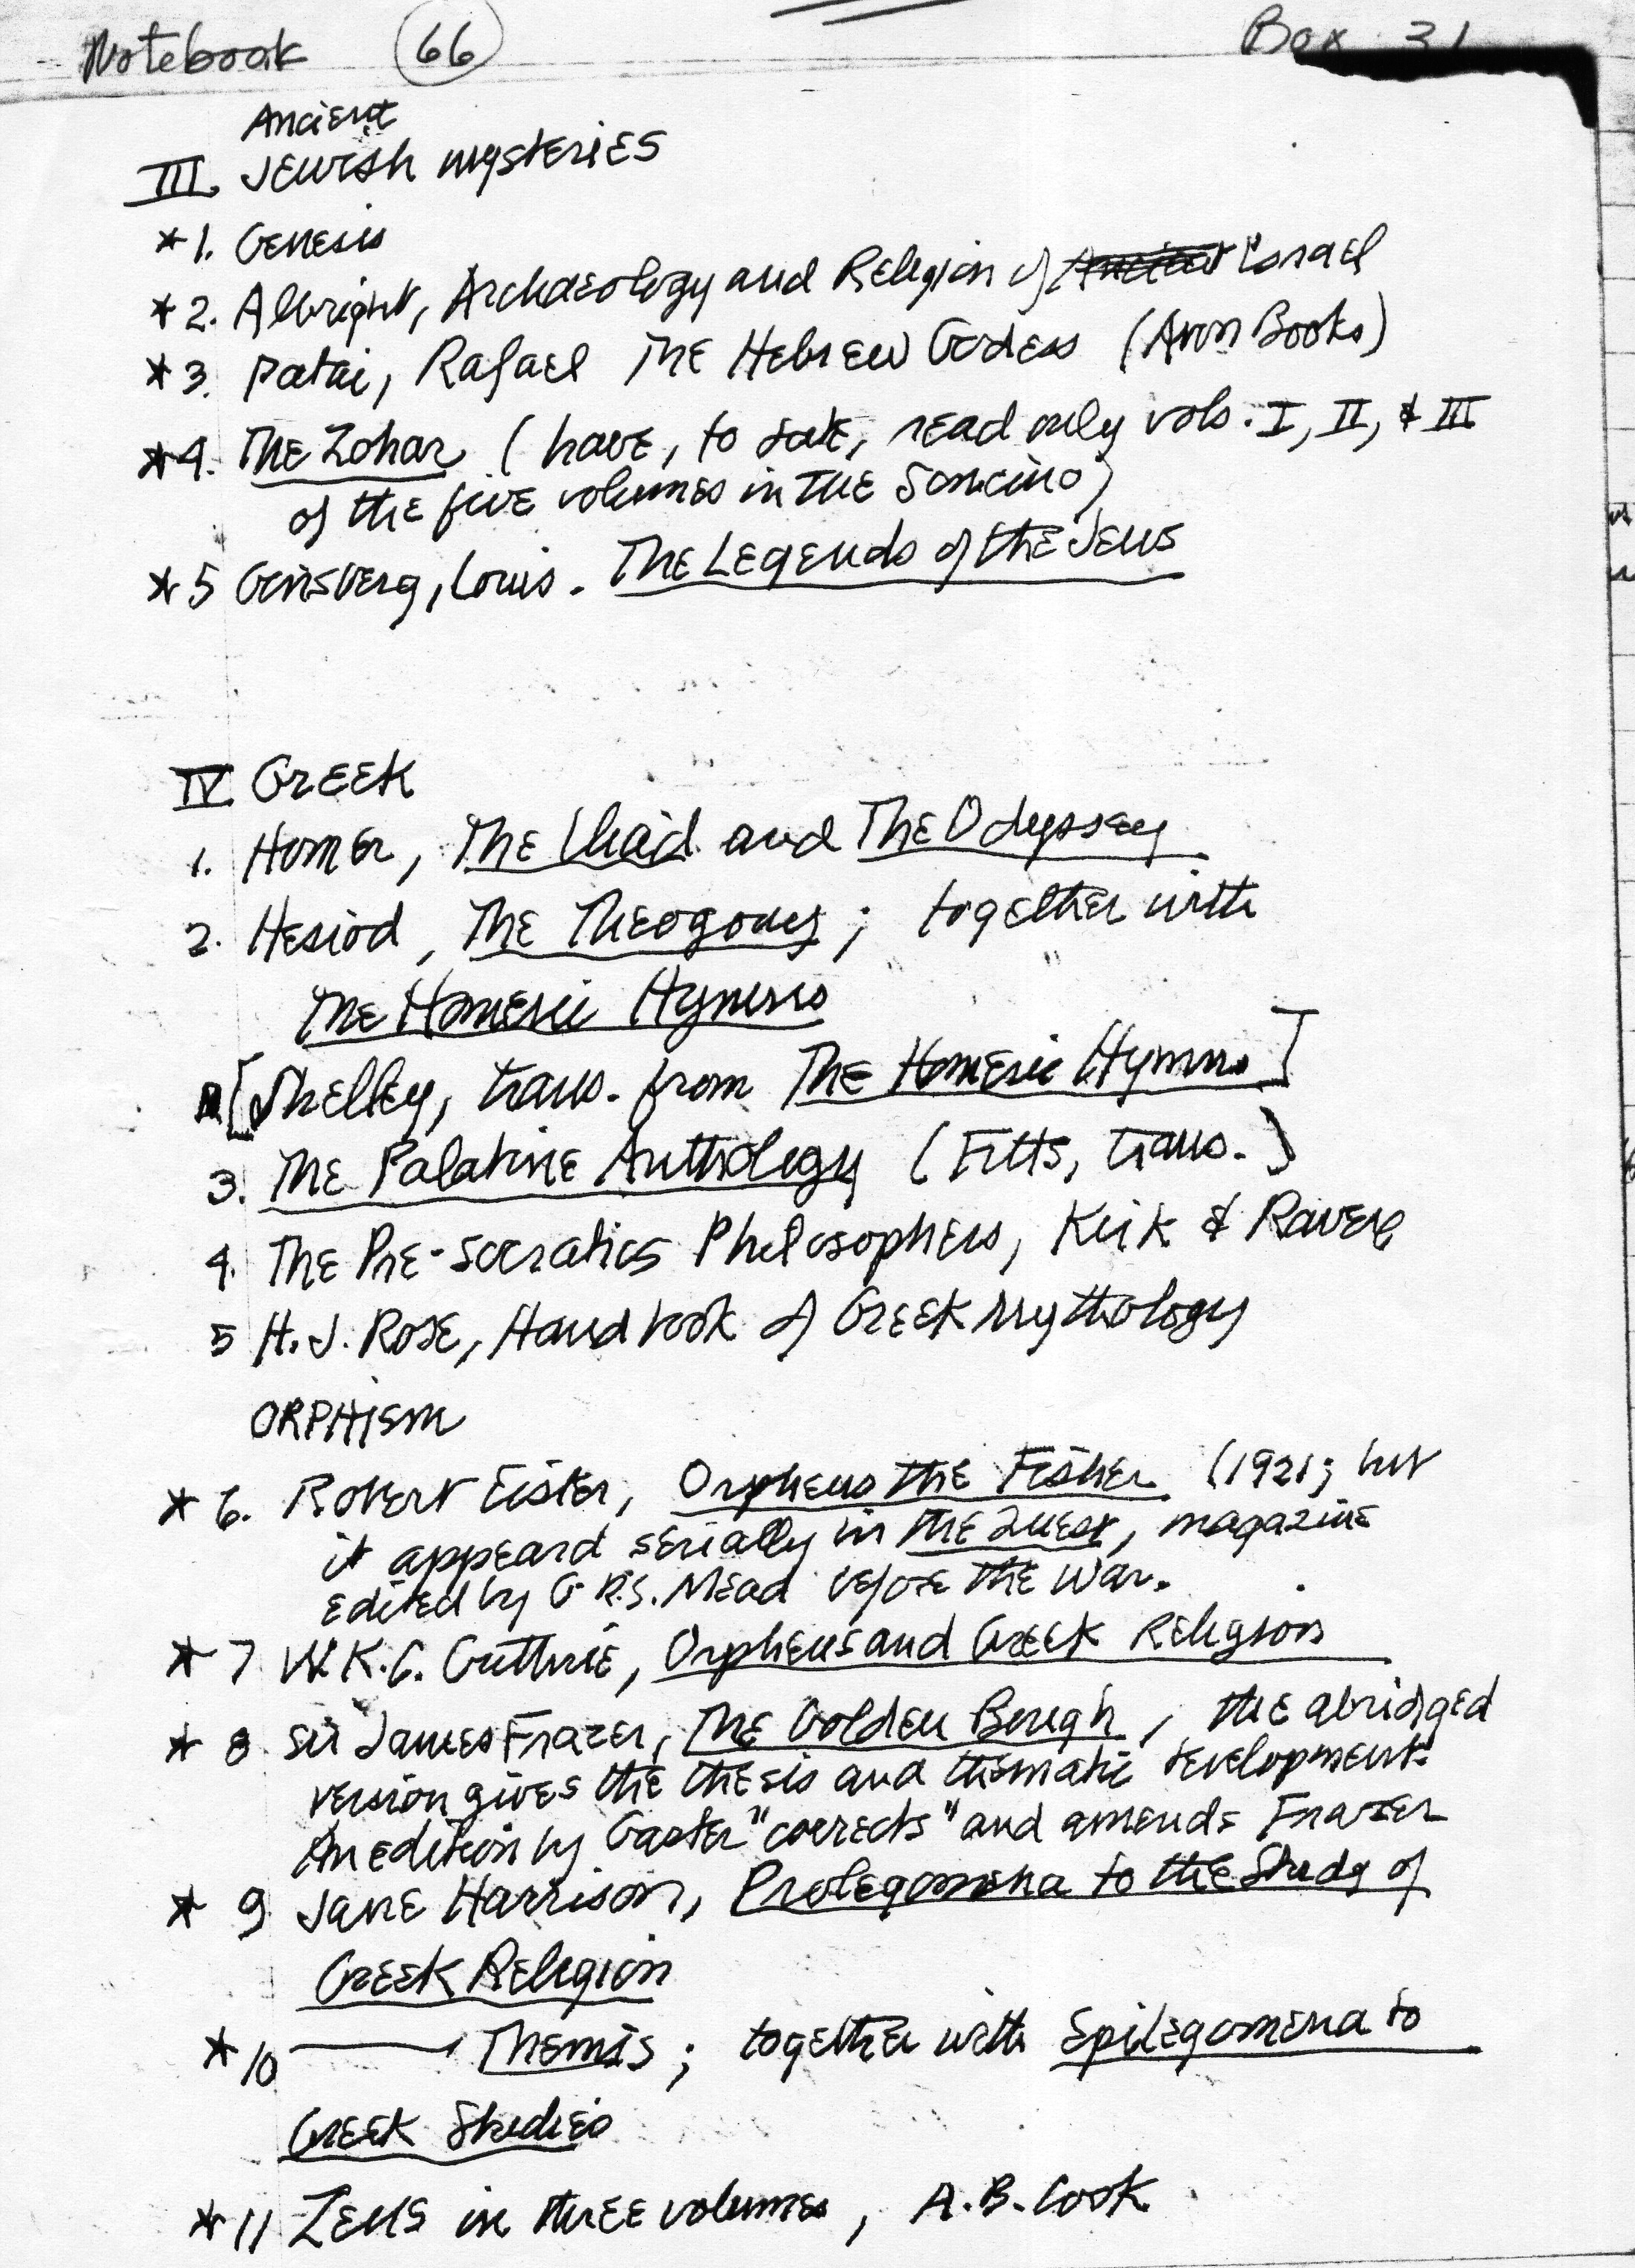 Notebook 66 Box 31
Ancient
III. Jewish mysteries
*1. Genesis
*2. Albright, Archaeology and Religion of Ancient Israel
*3. Patai, Rafael The Hebrew Godess (Avon Books)
*4. The Zohar (have, to date, read only vols. I, II, & III
of the five volumes in the Soncino)
*5 Ginsberg, Louis. The Legends of the Jews
IV. Greek
1. Homer, The Iliad and The Odyssey
2. Hesiod, The Theogony; together with
The Homeric Hymns
[Shelley, trans. from The Homeric Hymns]
3. The Palatine Anthology (Fitts, trans.)
4. The Pre-Socratics Philosophers, Kirk & Raven
5 H. J. Rose, Handbook of Greek Mythology
ORPHism
*6. Robert Eisler, Orpheus the Fisher (1921; but
it appeard serially in The Quest, magazine
edited by G.R.S. Mead before the War.
*7 W.K.C. Guthrie, Orpheus and Greek Religion
*8 Sir James Frazer, The Golden Bough, the abridged
version gives the thesis and thematic development.
An edition by Gaster "corrects" and amends Frazer
*9 Jane Harrison, Prolegomena to the Study of
Greek Religion
*10 —— Themis; together with Epilegomena to
Greek Studies
*11 Zeus in three volumes, A.B. Cook